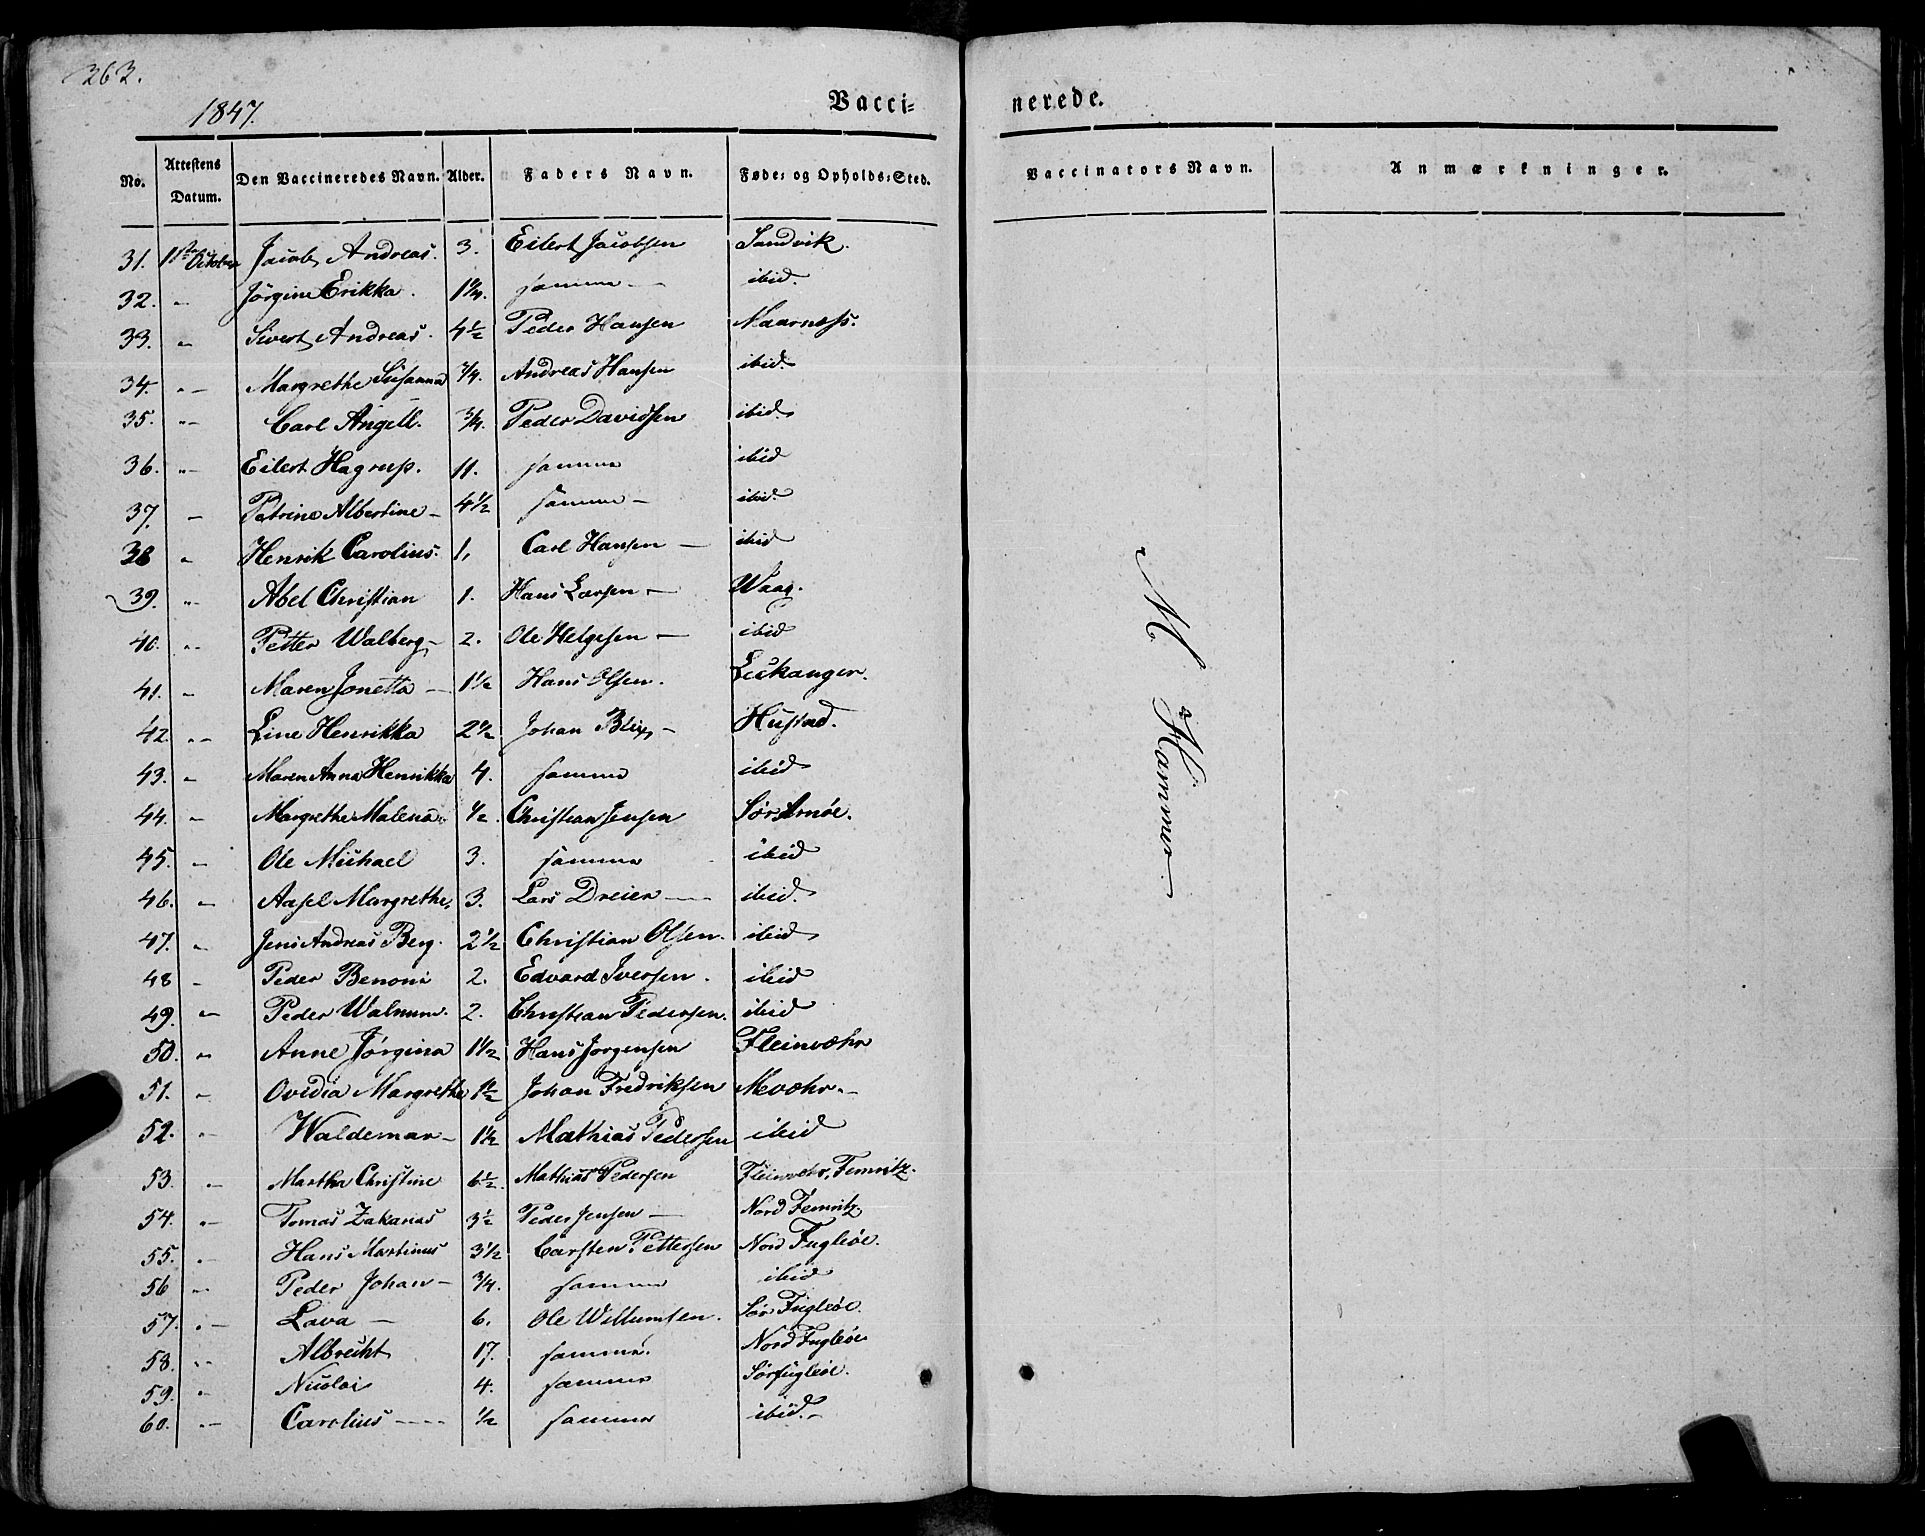 263.
1847.
Vacci=nerede.
No. Attestens Datum. Den Vaccineredes Navn. Alder. Faders Navn. Føde= og Opholds=Sted. Vaccinators Navn. Anmærkninger.
31. 1ste October Jacob Andreas. 3. Eilert Jacobsen Sandvik.
32. " Jörgine Erikka. samme ibid.
33. " Sivert Andreas. 4½ Peder Hansen Maarnæss.
34. " Margrethe Susanna ¾. Andreas Hansen ibid.
35. " Carl Angell. ¾. Peder Davidsen ibid.
36. " Eilert Hagrup. 11. samme ibid
37. Petrine Albertine 4½ samme ibid.
38 " Henrik Carolius. 1, Carl Hansen ibid
39. " Abel Christian 1. Hans Larsen Waag.
40. " Petter Walberg 2. Ole Helgesen ibid
41. " Maren Jonetta 1½ Hans Olsen. Leskanger.
42 " Line Henrikka 2½ Johan Blix Hustad.
43. " Maren Anna Henrikka 4. samme ibid
44. " Margrethe Malena ½. Christian Jensen Sør Arnøe.
45. " Ole Michael 3. samme ibid
46. " Aasel Margrethe 3. Lars Dreier ibid.
47. " Jens Andreas Berg. 2½ Christian Olsen. ibid
48 Peder Benoni 2. Edvard Iversen. ibid
49. " Peder Walnum. 2. Christian Pedersen. ibid
50. " Anne Jørgina 1½ Hans Jørgensen Fleinvæhr
51. " Ovidia Margrethe 1½ Johan Fredriksen Mevæhr.
52. " Waldemar 1½ Mathias Pedersen ibid
53. " Martha Christine 6½. Mathias Pedersen Fleinvæhr, Femritz.
54. " Tomas Zakarias 3½ Peder Jensen Nord Femritz.
55. " Hans Martinus 3½ Carsten Pettersen Nord Fugløe.
56 " Peder Johan ¾. samme ibid
57. " Lava 6. Ole Willumsen. Sør Fugløe.
58. " Albrecht 17. samme. Nord Fugløe
59. " Nicolai 4. samme Sørfugløe.
60. " Carolius ½ samme ibid.
M Hammer